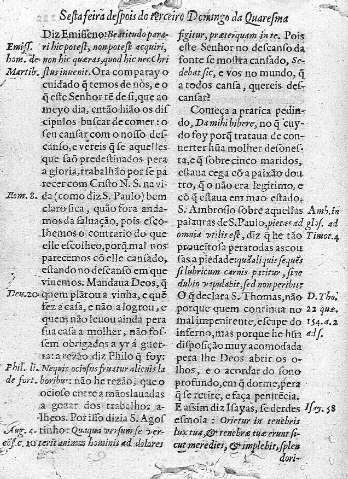 Sesta feira despois do terceiro Domingo da Quaresma
Diz Emisseno: Beatitudo para
Emiss. ri hic potest, non potest acquiri,
hom. de non hic quæras, quod hic nec Chri
Martir. stus invenit. Ora comparay o
cuidado q̃ temos de nòs, e o
q̃ este Senhor tẽ de si, que ao
meyo dia, entào hião os disci
pulos buscar de comer: o
seu cansar com o nosso des-
canso, e vereis q̃ se aquelles
que saõ predestinados pera
a gloria, trabalhão por se pa
recer com Cristo N. S. na vi-
Rom. 8. da (como diz S. Paulo) bem
claro fica, quão fora anda-
mos da salvação, pois esco-
lhemos o contrario do que
elle escolheo, porq̃ mal nos
parecemos cõ elle cansado,
estando no descanso em que
vivemos. Mandava Deos, q̃
Deu. 20 quem plãtou a vinha, e quẽ
fez a casa, e não a logrou, e
quem não levou ainda pera
sua casa a molher, não fos-
sem obrigados a yr á guerra
rta: e dà rezão diz Philo q̃ foy:
Phil. li. Nequis otiosus fruatur alienis la
de fort. boribus: não he rezão, que o
ocioso entre a mãos lauadas
a gozar dos trabalhos a-
lheos. Por isso dizia S. Agos
Aug. 4. tinho: Quaquaversum se ver-
cõf. c. 10 terit anima hominis ad dolores
figitur, præterquam in te. Pois
este Senhor no descanso da
fonte se mostra cansado, Se-
debat sic, e vos no mundo, q̃
a todos cansa, quereis des-
cansar?
Começa a pratica pedin-
do, Da mihi bibere, no q̃ cuy-
do foy porq̃ tratava de con-
verter hũa molher desonest-
ta, q̃ sobre cinco maridos,
estava cega cõ a paixão dou
tro, q̃ não era legitimo, e
cõ q̃ estava em mao estado.
S. Ambrosio sobre aquellas Amb. in
palavras de S. Paulo, pietas ad glos. ad
omnia utilis est, diz q̃ he tão Timot. 4
proveitosa pera todas as cou
sas a piedade: quã
si lubricum carnis patitur, sine
dubio vapulabit, sed non peribit
O q̃ declara S. Thomas, não D. Tho.
porque quem continua no 22 que.
mal impenitente, escape do 154. a. 2
inferno, mas porque he hũa
disposição muy acomodada
pera lhe Deos abrir os o-
lhos, e o acordar do sono
profundo, em q̃ dorme, pera
q̃ se retire, e faça penitẽcia.
E assim diz Isayas, se derdes Isay. 58
esmola: Orietur in tenebris
lux tua, & tenebræ tuæ erunt si-
cut meridies, & implebit, splen
dori-